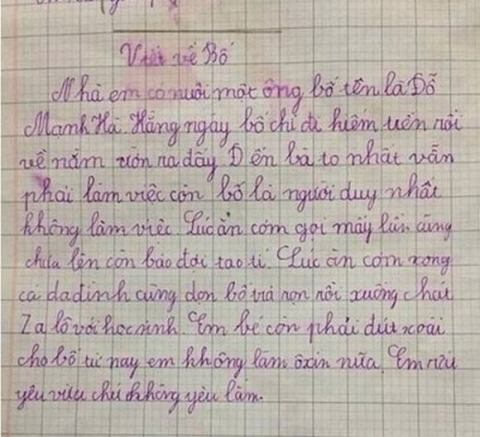 Viết về Bố
Nhà em có nuôi một ông bố tên là Đỗ
Mạnh Hà. Hằng ngày bố chỉ đi hiếm uên rồi
về nằm ườn ra đấy. Đến bà to nhất vẫn
phải làm việc còn bố là người duy nhất
không làm việc. Lúc ăn cơm gọi mấy lần cũng
chưa lên còn bảo đợi tao tí. Lúc ăn cơm xong
cả da đình cùng dọn bố trả rọn rồi xuống chát
Za lô với học sinh. Em bé còn phải đút xoài
cho bố từ nay em không làm ôxin nữa. Em rất
yêu chứ không yêu lắm.